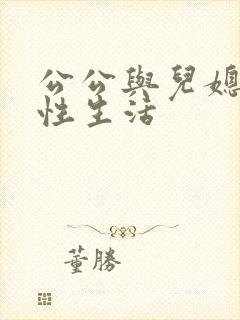 公公與兒媳
性生活
董勝